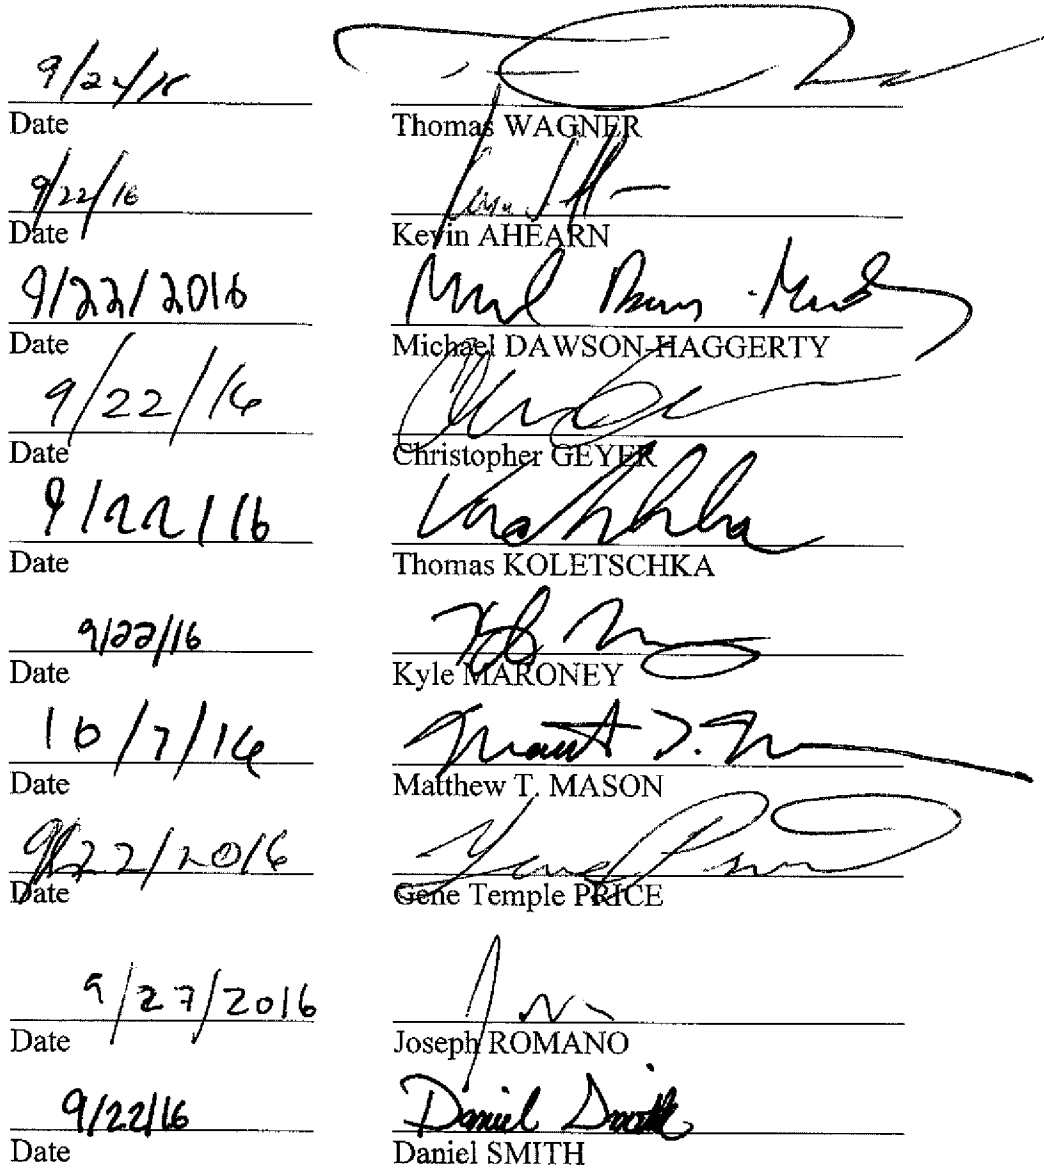 9/22/16
Date Thomas WAGNER
9/22/16
Date Kevin AHEARN
9/22/2016
Date Michael DAWSON-HAGGERTY
9/22/16
Date Christopher GEYER
9/22/16
Date Thomas KOLETSCHKA
9/22/16
Date Kyle MARONEY
10/7/16
Date Matthew T. MASON
9/22/2016
Date Gene Temple PRICE
9/27/2016
Date Joseph ROMANO
9/22/16 Daniel Smith
Date Daniel SMITH